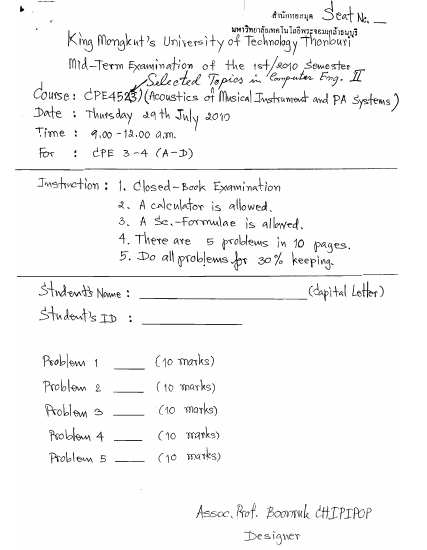 สำนักหอสมุด Seat No. __
มหาวิทยาลัยเทคโนโลยีพระจอมเกล้าธนบุรี
King Mongkut's University of Technology Thonburi
Mid-Term Examination of the 1st/2010 Semester
Selected Topics in Computer Eng. II
Course : CPE4523 (Acoustics of Musical Instrument and PA Systems)
Date : Thursday 29th July 2010
Time : 9.00-12.00 a.m.
For : CPE 3-4 (A-D)
Instruction : 1. Closed-Book Examination
2. A calculator is allowed.
3. A Sc.-Formulae is allowed.
4. There are 5 problems in 10 pages.
5. Do all problems for 30% keeping.
Student's Name : ____ (Capital Letter)
Student's ID : ____
Problem 1 ____ (10 marks)
Problem 2 ____ (10 marks)
Problem 3 ____ (10 marks)
Problem 4 ____ (10 marks)
Problem 5 ____ (10 marks)
Assoc. Prof. Boonruk CHIPIPOP
Designer